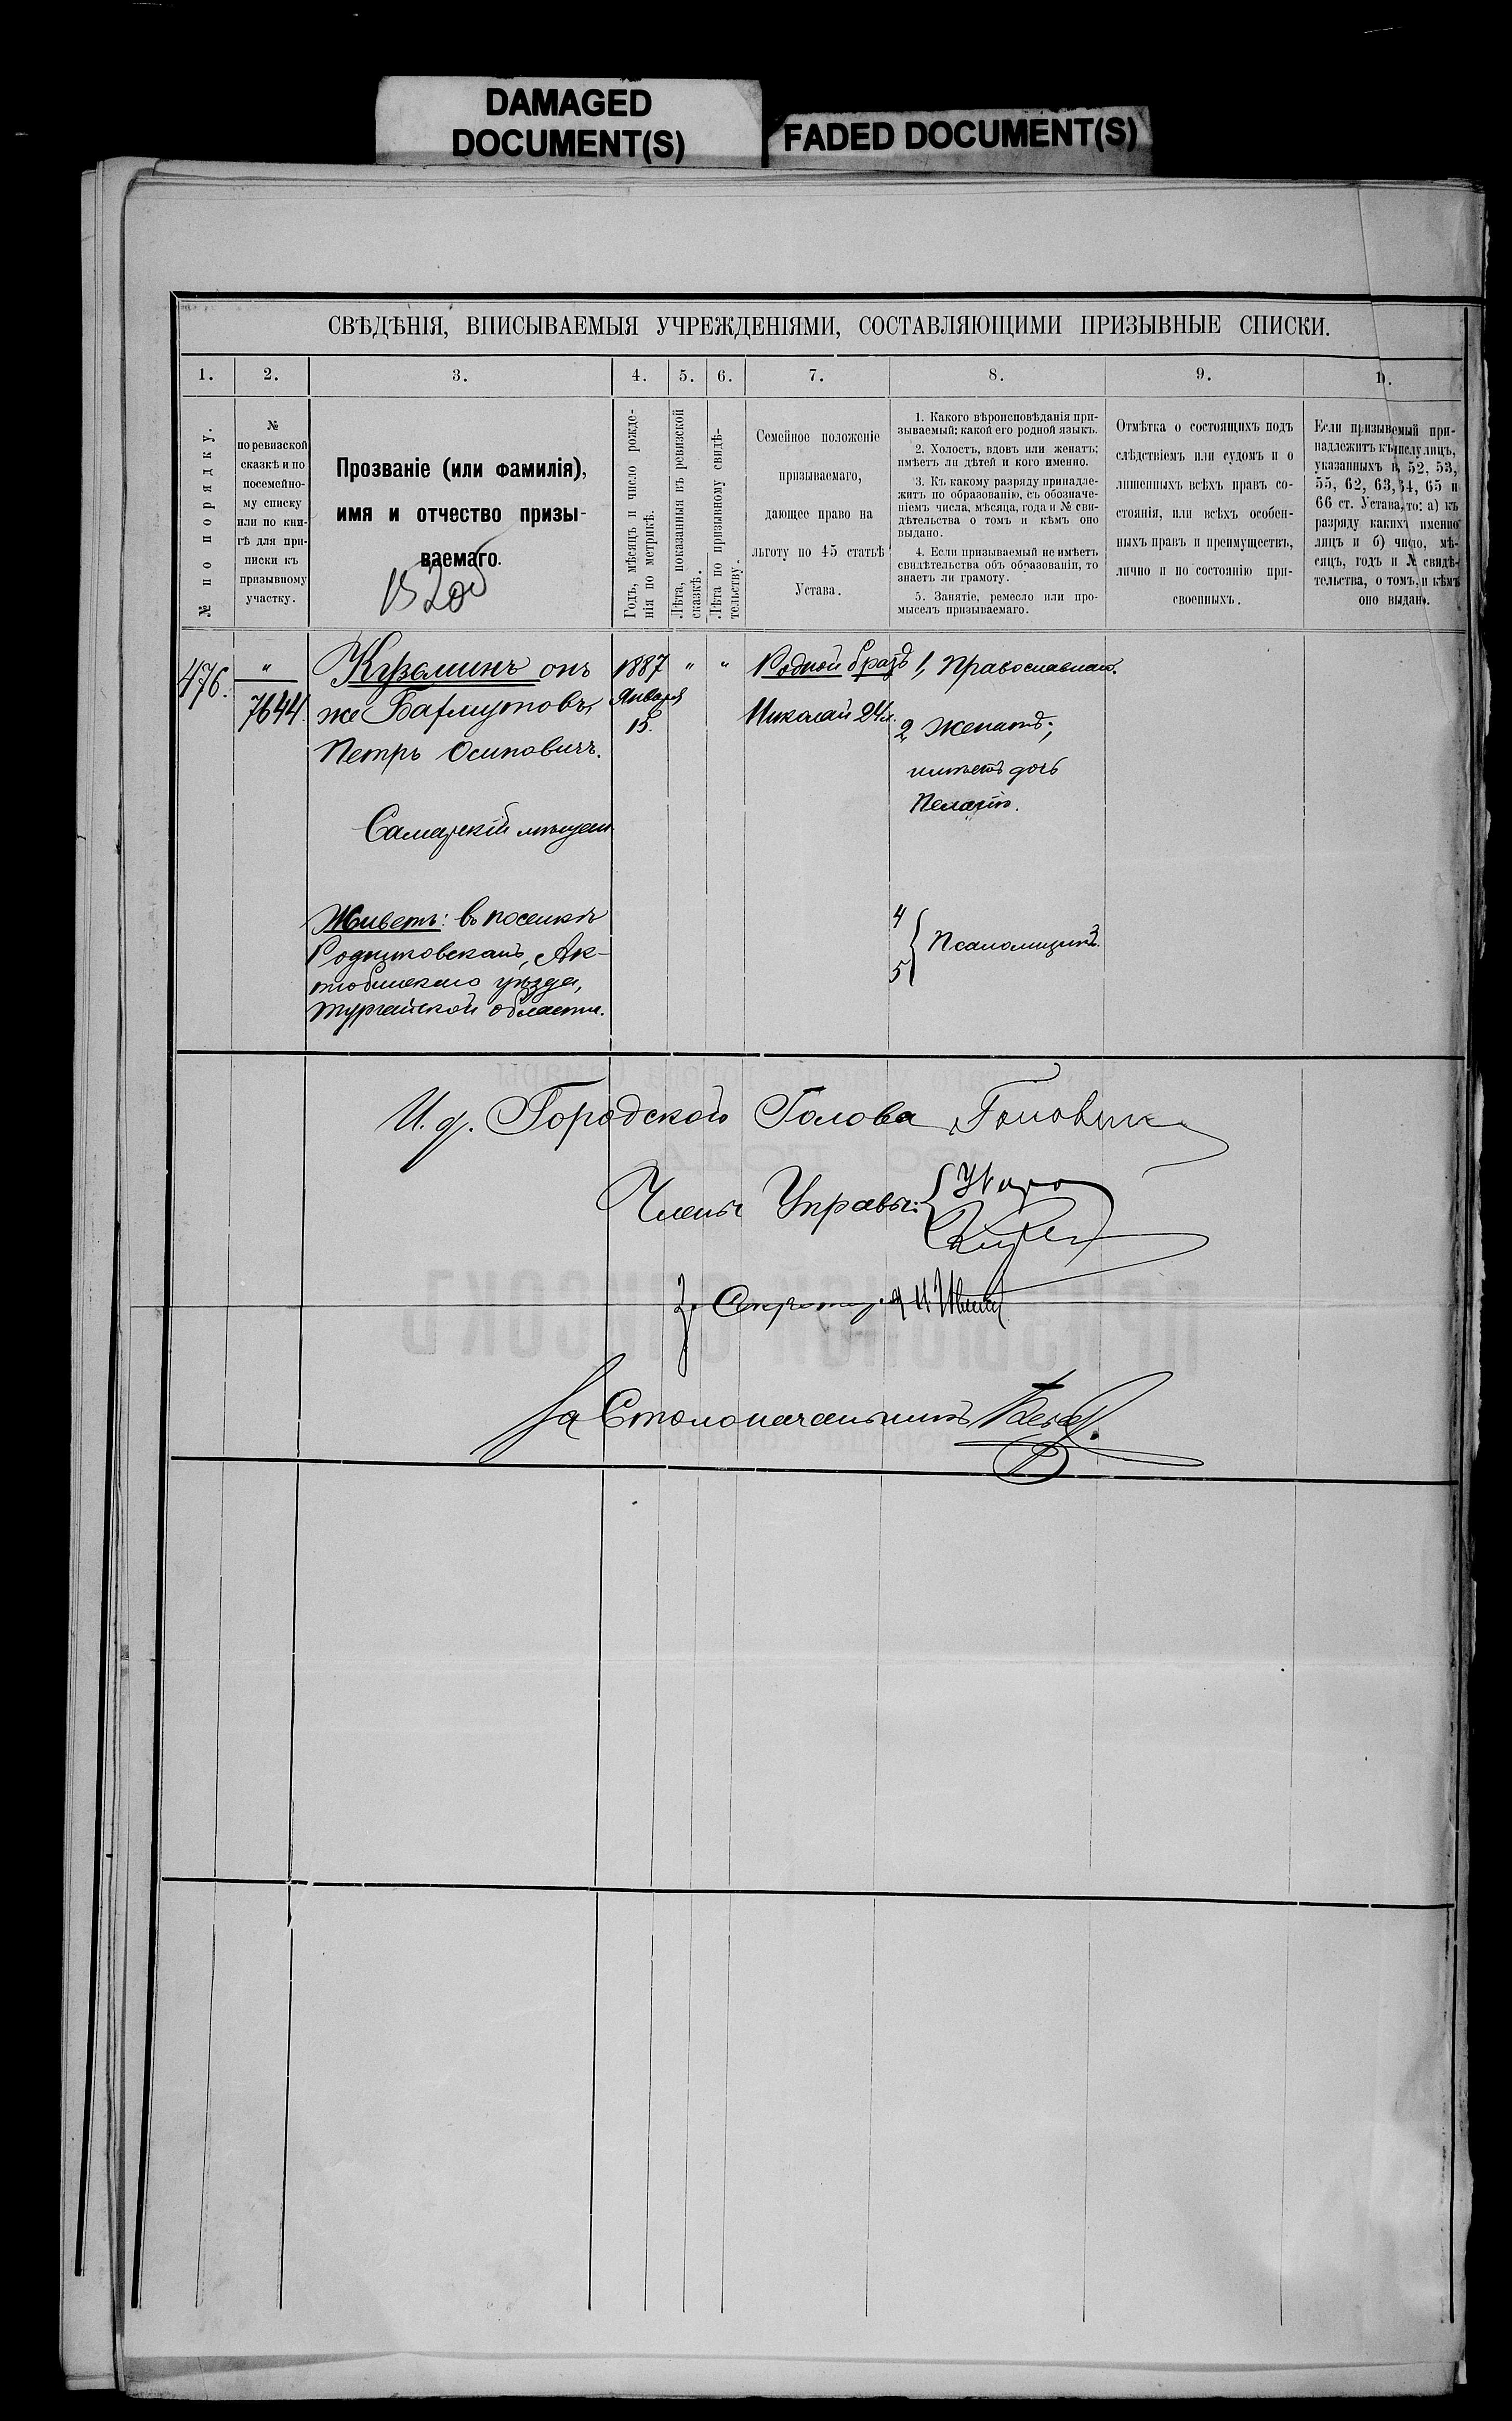 DAMAGED
DOCUMENT(S)
FADED DOCUMENT(S)
СВѢДѢНІЯ, ВПИСЫВАЕМЫЯ УЧРЕЖДЕНІЯМИ, СОСТАВЛЯЮЩИМИ ПРИЗЫВНЫЕ СПИСКИ.
1.
2.
3.
4.
5.
6.
7.
8.
9.
№ по порядку.
№
по ревизской
сказкѣ и по
посемейно-
му списку
или по кни-
гѣ для при-
писки къ
призывному
участку.
Прозваніе (или фамилія),
имя и отчество призы-
ваемаго.
Годъ, мѣсяцъ и число рожде-
нія по метрикѣ.
Лѣта, показанныя въ ревизской
сказкѣ.
Лѣта по призывному свидѣ-
тельству.
Семейное положеніе
призываемаго,
дающее право на
льготу по 45 статьѣ
Устава.
1. Какого вѣроисповѣданія при-
зываемый: какой его родной языкъ.
2. Холостъ, вдовъ или женатъ;
имѣетъ ли дѣтей и кого именно.
3. Къ какому разряду принадле-
житъ по образованію, съ обозначе-
ніемъ числа, мѣсяца, года и № сви-
дѣтельства о томъ и кѣмъ оно
выдано.
4. Если призываемый не имѣетъ
свидѣтельства объ образованіи, то
знаетъ ли грамоту.
5. Занятіе, ремесло или про-
мыселъ призываемаго.
Отмѣтка о состоящихъ подъ
слѣдствіемъ или судомъ и о
лишенныхъ всѣхъ правъ со-
стоянія, или всѣхъ особен-
ныхъ правъ и преимуществъ,
лично и по состоянію при-
своенныхъ.
Если призываемый при-
надлежитъ къ числу лицъ,
указанныхъ въ 52, 53,
55, 62, 63, 64, 65 и
66 ст. Устава, то: а) къ
разряду какихъ именно
лицъ и б) число, мѣ-
сяцъ, годъ и № свидѣ-
тельства, о томъ, и кѣмъ
оно выдано.
476.
"
7644
Кузьминъ онъ
же Бахмутовъ,
Петръ Осиповичъ.
Самарскій мѣщан.
Живетъ: въ поселкѣ
Родниковскомъ, Ак-
тюбинскаго уѣзда,
Тургайской области.
1887
Января
15.
"
"
Родной братъ
Николай 24 л.
1, Православнаго.
2, Женатъ;
имѣетъ дочь
Пелагію.
4
5
Псаломщикъ.
И. д. Городского Голова
Члены Управы:
За Столоначальника